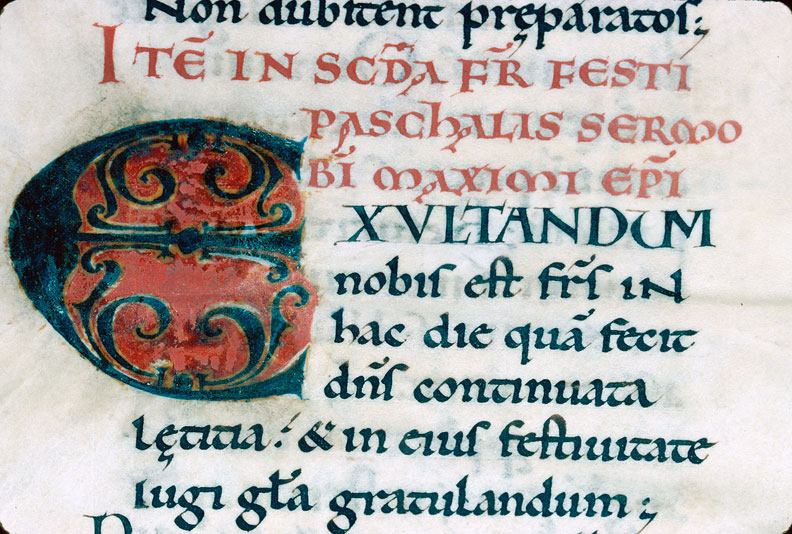 Non dubitent pręparatos;
ITĒ IN SCD̄A FR̄ FESTI
PASCHALIS SERMO
BĪ MAXIMI EP̄I
EXVLTANDUM
nobis est fr̄s IN
hac die quā fecit
dn̄s continuata
lętitia. & in eius festiuitate
Iugi gl̄a gratulandum;